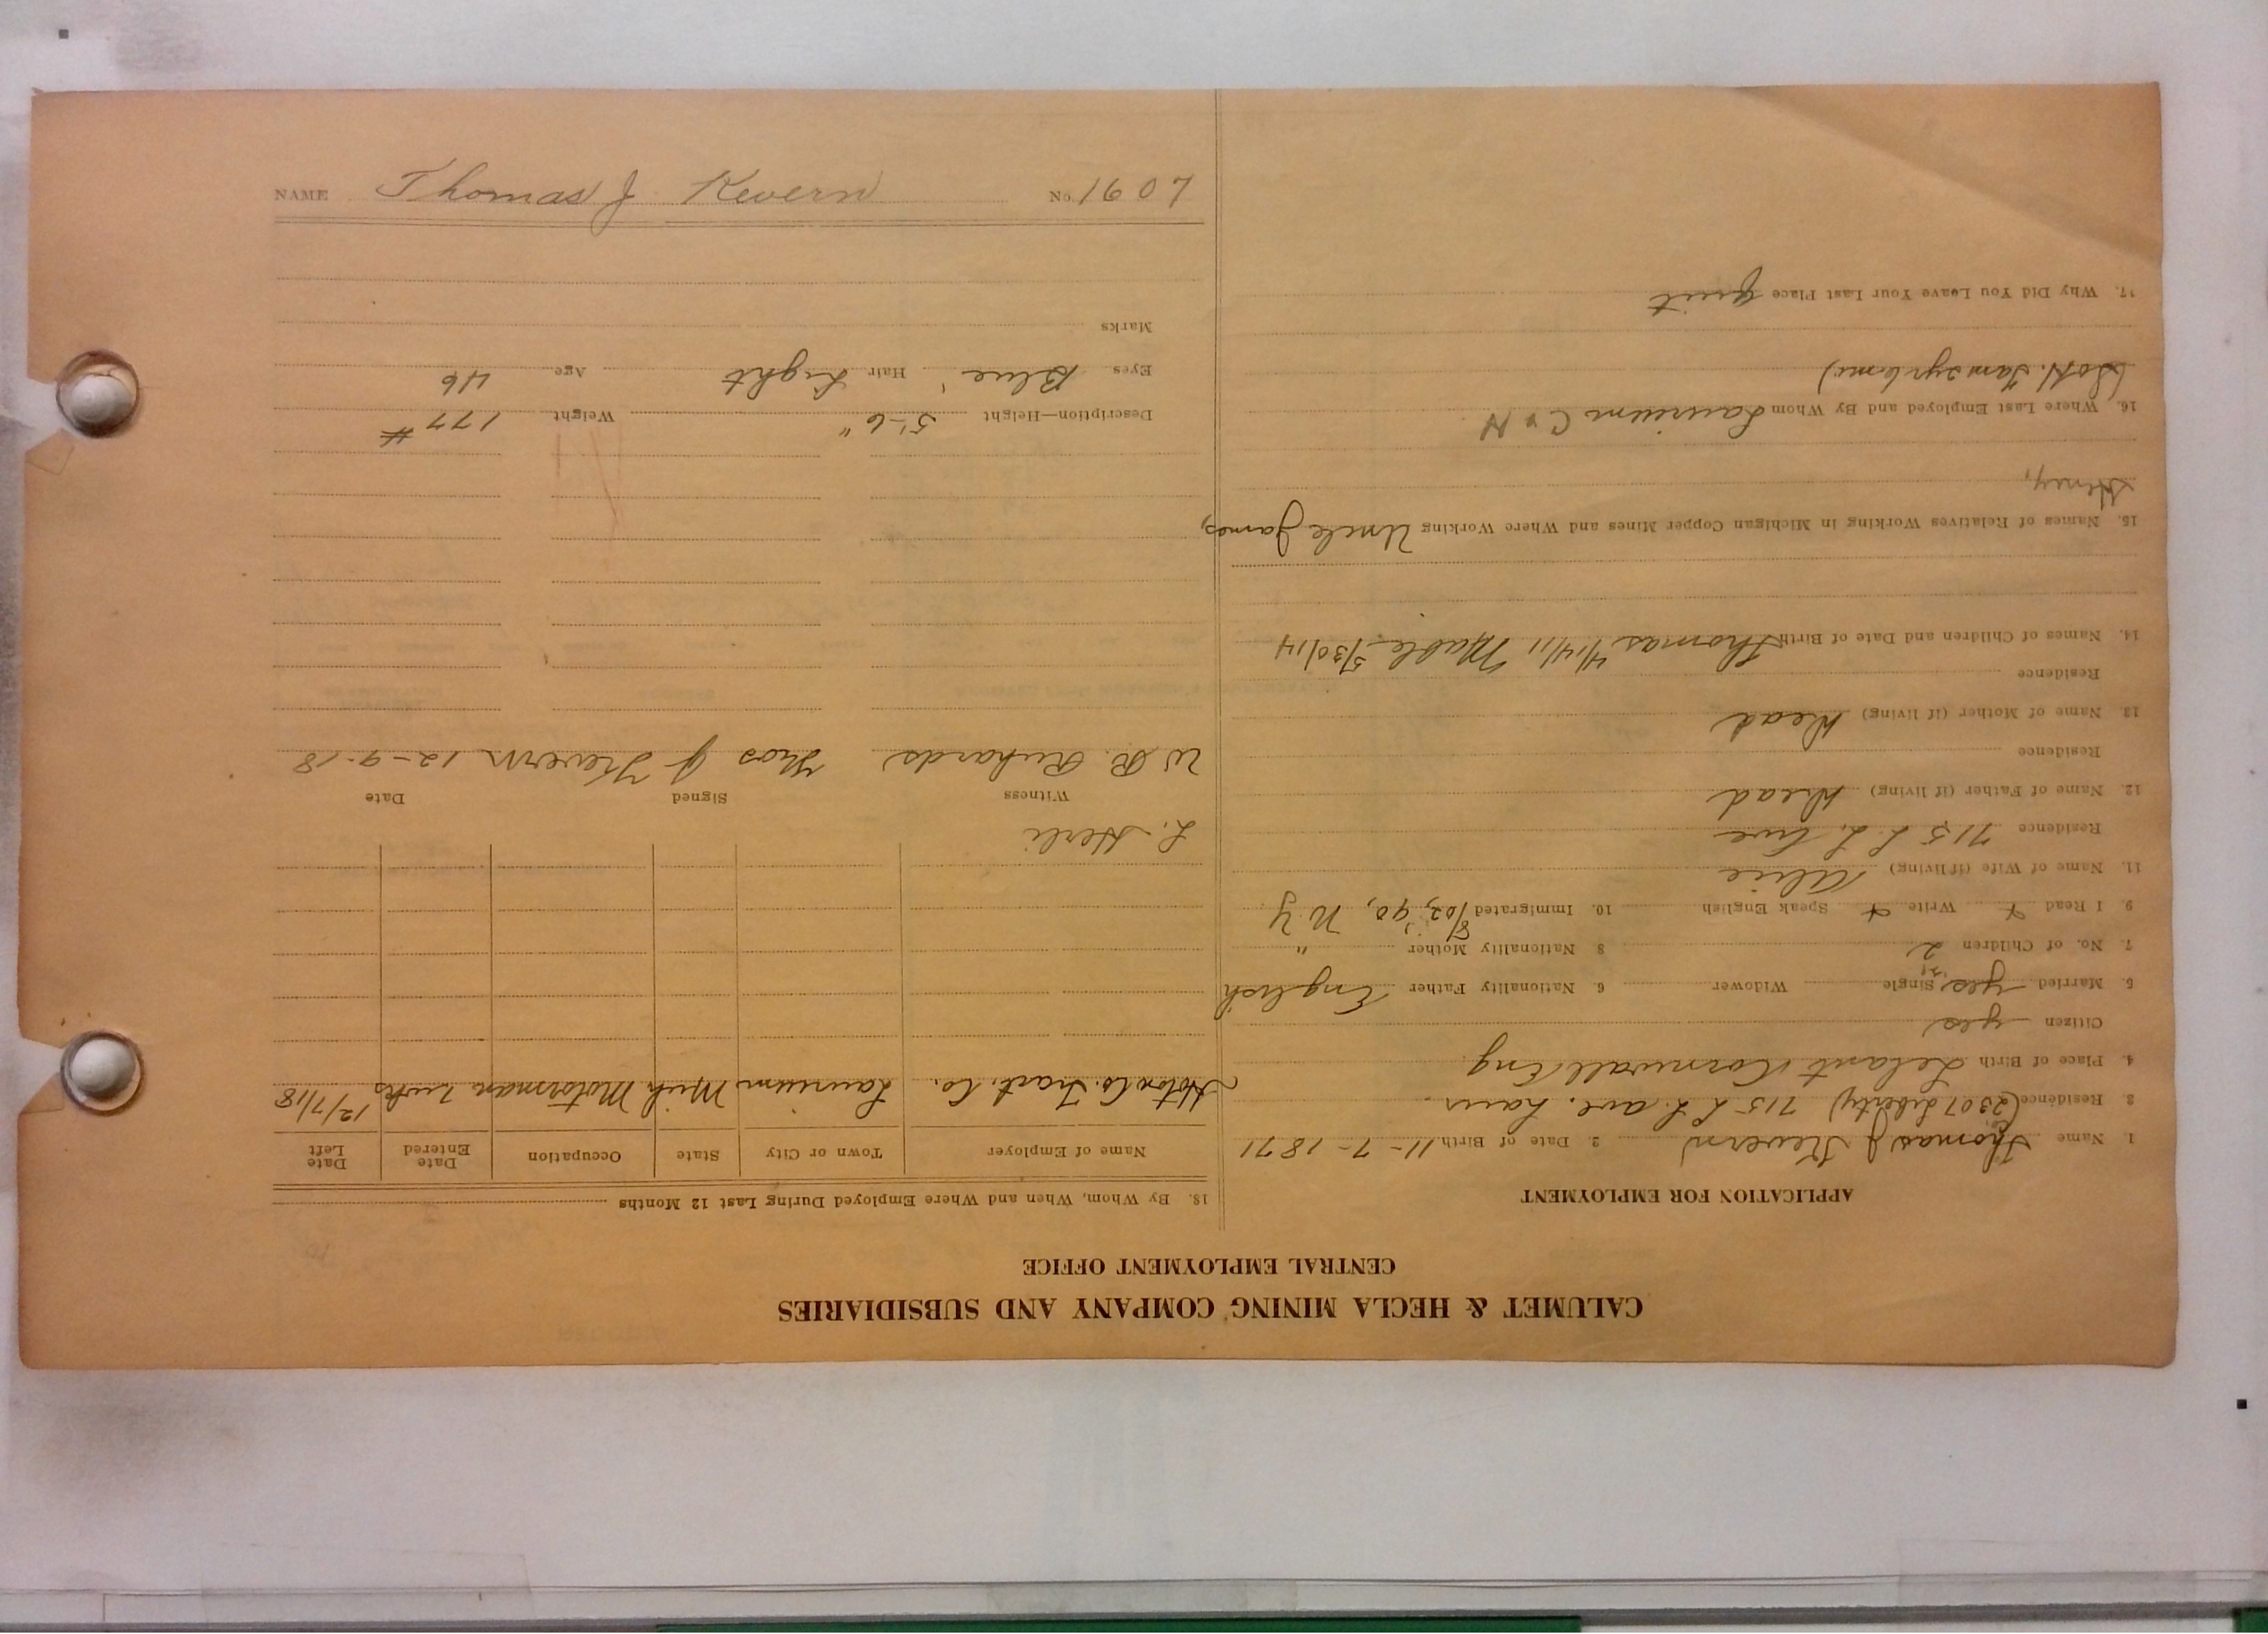 CALUMET & HECLA MINING COMPANY AND SUBSIDIARIES
CENTRAL EMPLOYMENT OFFICE
APPLICATION FOR EMPLOYMENT
1. Name Thomas J Kevern 2. Date of Birth 11-7-1871
3. Residence (2307 Liberty) 715 L. L. ave. Laur.
4. Place of Birth Lelant Cornwall Eng
Citizen yes
5. Married yes Single Widower 6. Nationality Father English
7. No. of Children 2 8 Nationality Mother "
9. I Read Write Speak English 10. Immigrated N.Y.
11. Name of Wife (if living) Alice
Residence 715 L. L. Ave
12. Name of Father (if living) Dead
Residence
13. Name of Mother (if living) Dead
Residence
14. Names of Children and Date of Birth Thomas 4/14/11 Mable 5/30/14
15. Names of Relatives Working in Michigan Copper Mines and Where Working Uncle James,
Henry,
16. Where Last Employed and By Whom Laurium C & H
17. Why Did You Leave Your Last Place quit
18. By Whom, When and Where Employed During Last 12 Months
Name of Employer Town or City State Occupation Date Entered Date Left
Hoton Co. Tract. Co. Laurium Mich Motorman 12/7/18
Witness Signed Date
W. R. Richards Thos J Kevern 12-9-18
Description—Height 5'-6" Weight 177 #
Eyes Blue Hair Light Age 46
Marks
NAME Thomas J Kevern No. 1607